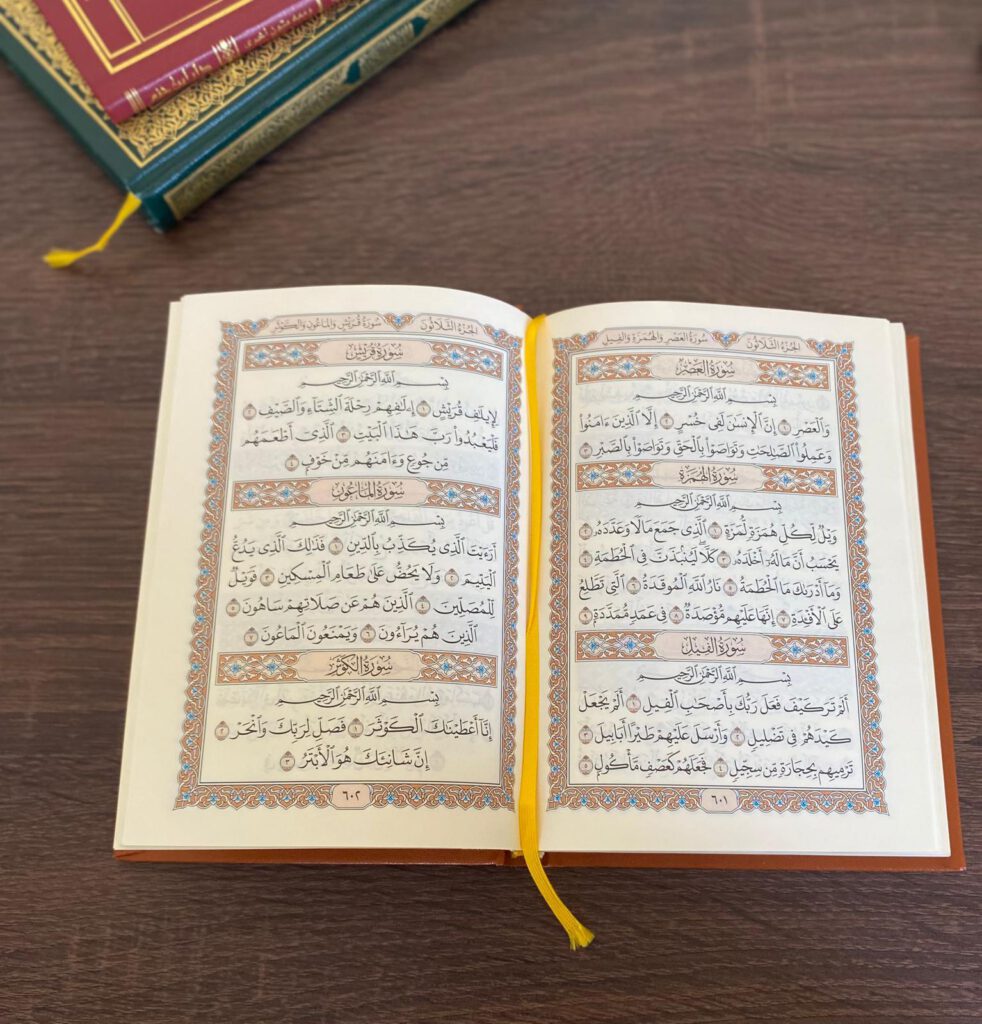 الجُزْءُ الثَّلَاثُونَ سُورَةُ العَصْرِ وَالهُمَزَةِ وَالفِيل
سُورَةُ العَصْرِ
بِسْمِ اللَّهِ الرَّحْمَٰنِ الرَّحِيمِ
وَالْعَصْرِ ١ إِنَّ الْإِنسَٰنَ لَفِى خُسْرٍ ٢ إِلَّا الَّذِينَ ءَامَنُوا۟
وَعَمِلُوا۟ الصَّٰلِحَٰتِ وَتَوَاصَوْا۟ بِالْحَقِّ وَتَوَاصَوْا۟ بِالصَّبْرِ ٣
سُورَةُ الهُمَزَةِ
بِسْمِ اللَّهِ الرَّحْمَٰنِ الرَّحِيمِ
وَيْلٌ لِّكُلِّ هُمَزَةٍ لُّمَزَةٍ ١ الَّذِى جَمَعَ مَالًا وَعَدَّدَهُۥ ٢
يَحْسَبُ أَنَّ مَالَهُۥٓ أَخْلَدَهُۥ ٣ كَلَّا لَيُنۢبَذَنَّ فِى الْحُطَمَةِ ٤
وَمَآ أَدْرَىٰكَ مَا الْحُطَمَةُ ٥ نَارُ اللَّهِ الْمُوقَدَةُ ٦ الَّتِى تَطَّلِعُ
عَلَى الْأَفْـِٔدَةِ ٧ إِنَّهَا عَلَيْهِم مُّؤْصَدَةٌ ٨ فِى عَمَدٍ مُّمَدَّدَةٍ ٩
سُورَةُ الفِيلِ
بِسْمِ اللَّهِ الرَّحْمَٰنِ الرَّحِيمِ
أَلَمْ تَرَ كَيْفَ فَعَلَ رَبُّكَ بِأَصْحَٰبِ الْفِيلِ ١ أَلَمْ يَجْعَلْ
كَيْدَهُمْ فِى تَضْلِيلٍ ٢ وَأَرْسَلَ عَلَيْهِمْ طَيْرًا أَبَابِيلَ ٣
تَرْمِيهِم بِحِجَارَةٍ مِّن سِجِّيلٍ ٤ فَجَعَلَهُمْ كَعَصْفٍ مَّأْكُولٍ ٥
٦٠١
الجُزْءُ الثَّلَاثُونَ سُورَةُ قُرَيْشٍ وَالمَاعُونِ وَالكَوْثَر
سُورَةُ قُرَيْشٍ
بِسْمِ اللَّهِ الرَّحْمَٰنِ الرَّحِيمِ
لِإِيلَٰفِ قُرَيْشٍ ١ إِۦلَٰفِهِمْ رِحْلَةَ الشِّتَآءِ وَالصَّيْفِ ٢
فَلْيَعْبُدُوا۟ رَبَّ هَٰذَا الْبَيْتِ ٣ الَّذِىٓ أَطْعَمَهُم
مِّن جُوعٍ وَءَامَنَهُم مِّنْ خَوْفٍۭ ٤
سُورَةُ المَاعُونِ
بِسْمِ اللَّهِ الرَّحْمَٰنِ الرَّحِيمِ
أَرَءَيْتَ الَّذِى يُكَذِّبُ بِالدِّينِ ١ فَذَٰلِكَ الَّذِى يَدُعُّ
الْيَتِيمَ ٢ وَلَا يَحُضُّ عَلَىٰ طَعَامِ الْمِسْكِينِ ٣ فَوَيْلٌ
لِّلْمُصَلِّينَ ٤ الَّذِينَ هُمْ عَن صَلَاتِهِمْ سَاهُونَ ٥
الَّذِينَ هُمْ يُرَآءُونَ ٦ وَيَمْنَعُونَ الْمَاعُونَ ٧
سُورَةُ الكَوْثَرِ
بِسْمِ اللَّهِ الرَّحْمَٰنِ الرَّحِيمِ
إِنَّآ أَعْطَيْنَٰكَ الْكَوْثَرَ ١ فَصَلِّ لِرَبِّكَ وَانْحَرْ ٢
إِنَّ شَانِئَكَ هُوَ الْأَبْتَرُ ٣
٦٠٢
دار ابن حزم